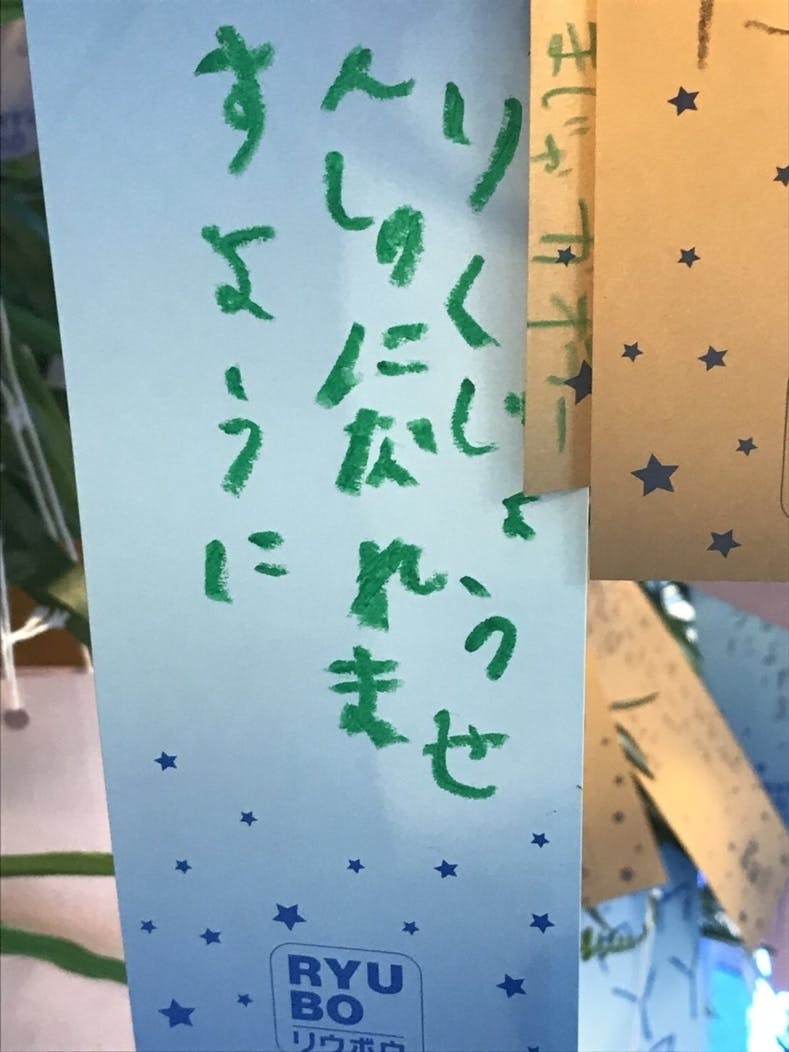 りくじょうせ
んしゅになれま
すように
RYU
BO
リウボウ